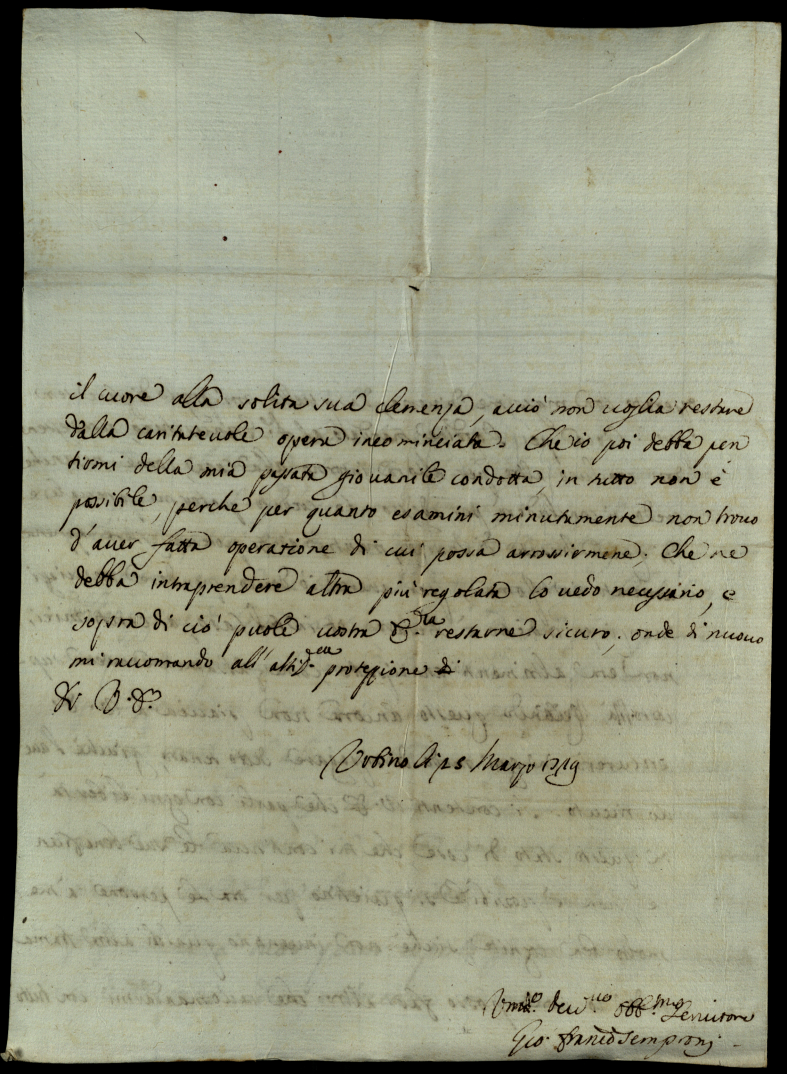 il cuore alla solita sua clemenza, acciò non voglia restare
dalla caritatevole opera incominciata. Che io poi debba pen
tirmi della mia passata giovanile condotta, in tutto non è
possibile, perche per quanto esamini minutamente non trovo
d'aver fatta operatione di cui possa arrossirmene; Che ne
debba intraprendere altra più regolata lo vedo necessario, e
sopra di ciò puole vostra restarne sicuro; onde di nuovo
mi raccomando all' protezzione di
Urbino Marzo 1719
Servitore
Gio: Franco Semproni